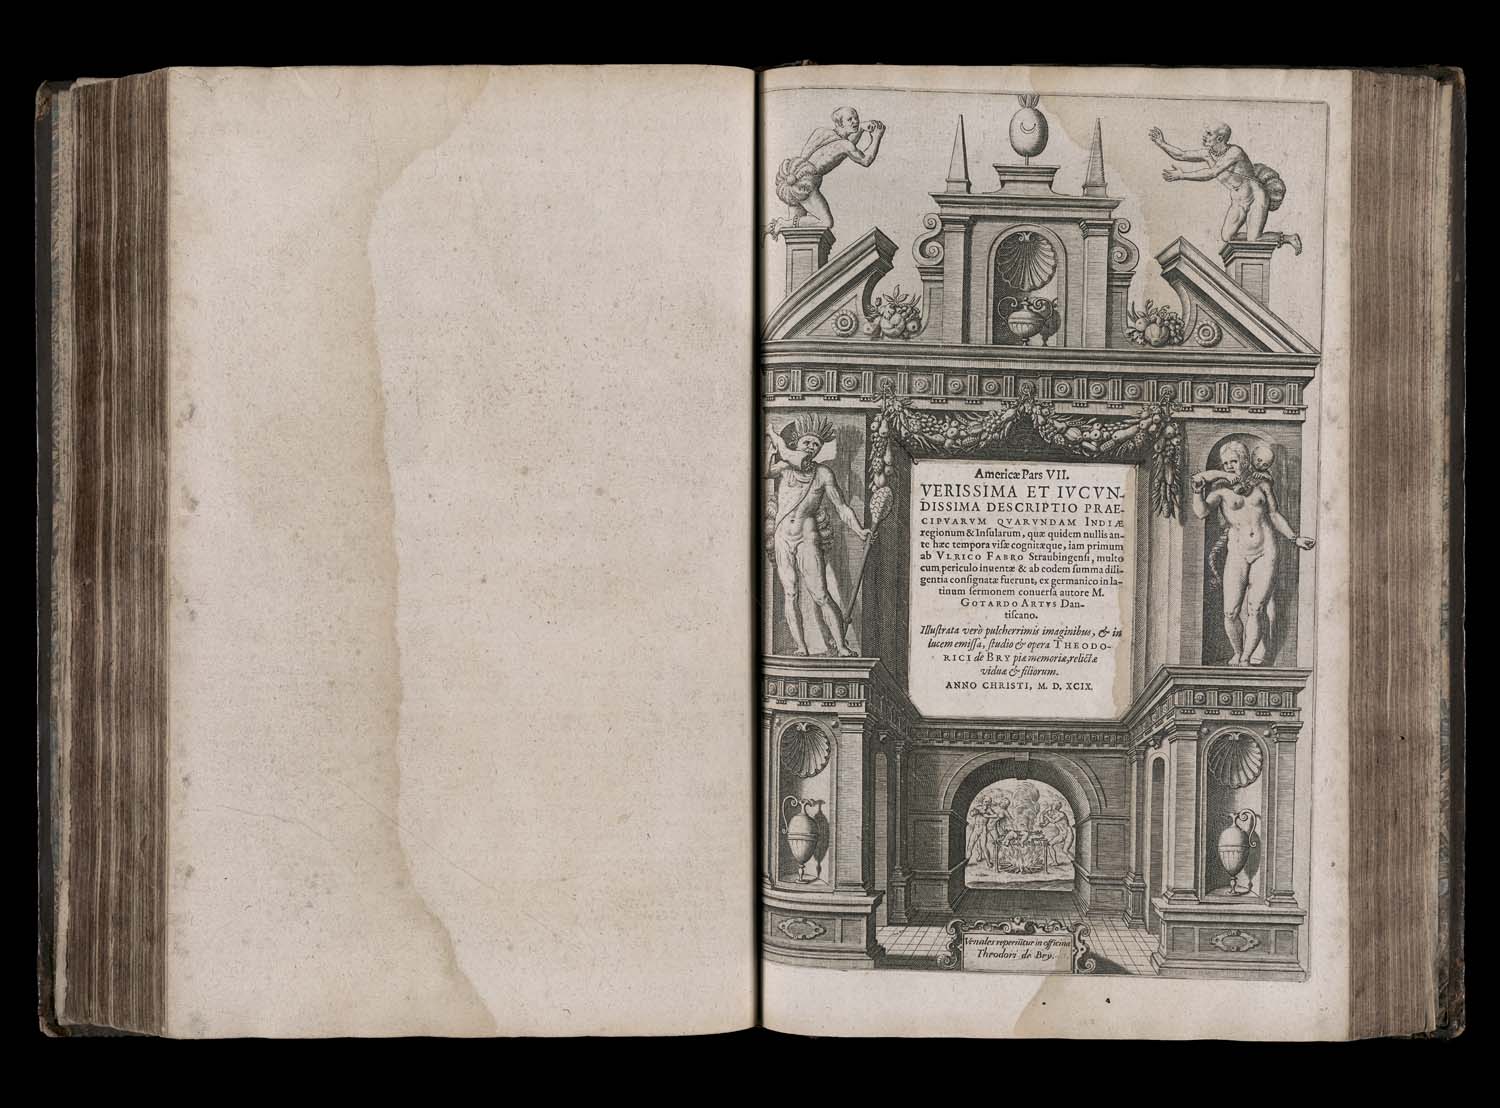 Americæ Pars VII.
VERISSIMA ET IVCVN-
DISSIMA DESCRIPTIO PRAE-
CIPVARVM QVARVNDAM INDIÆ
regionum & Insularum, quæ quidem nullis an-
te hæc tempora visæ cognitæque, iam primum
ab VLRICO FABRO Straubingensi, multo
cum periculo inuentæ & ab eodem summa dili-
gentia consignatæ fuerunt, ex germanico in la-
tinum sermonem conuersa autore M.
GOTARDO ARTVS Dan-
tiscano.
Illustrata verò pulcherrimis imaginibus, & in
lucem emissa, studio & opera THEODO-
RICI de BRY piæ memoriæ, relictæ
viduæ & filiorum.
ANNO CHRISTI, M. D. XCIX.
Venales reperiũtur in officina
Theodori de Bry.